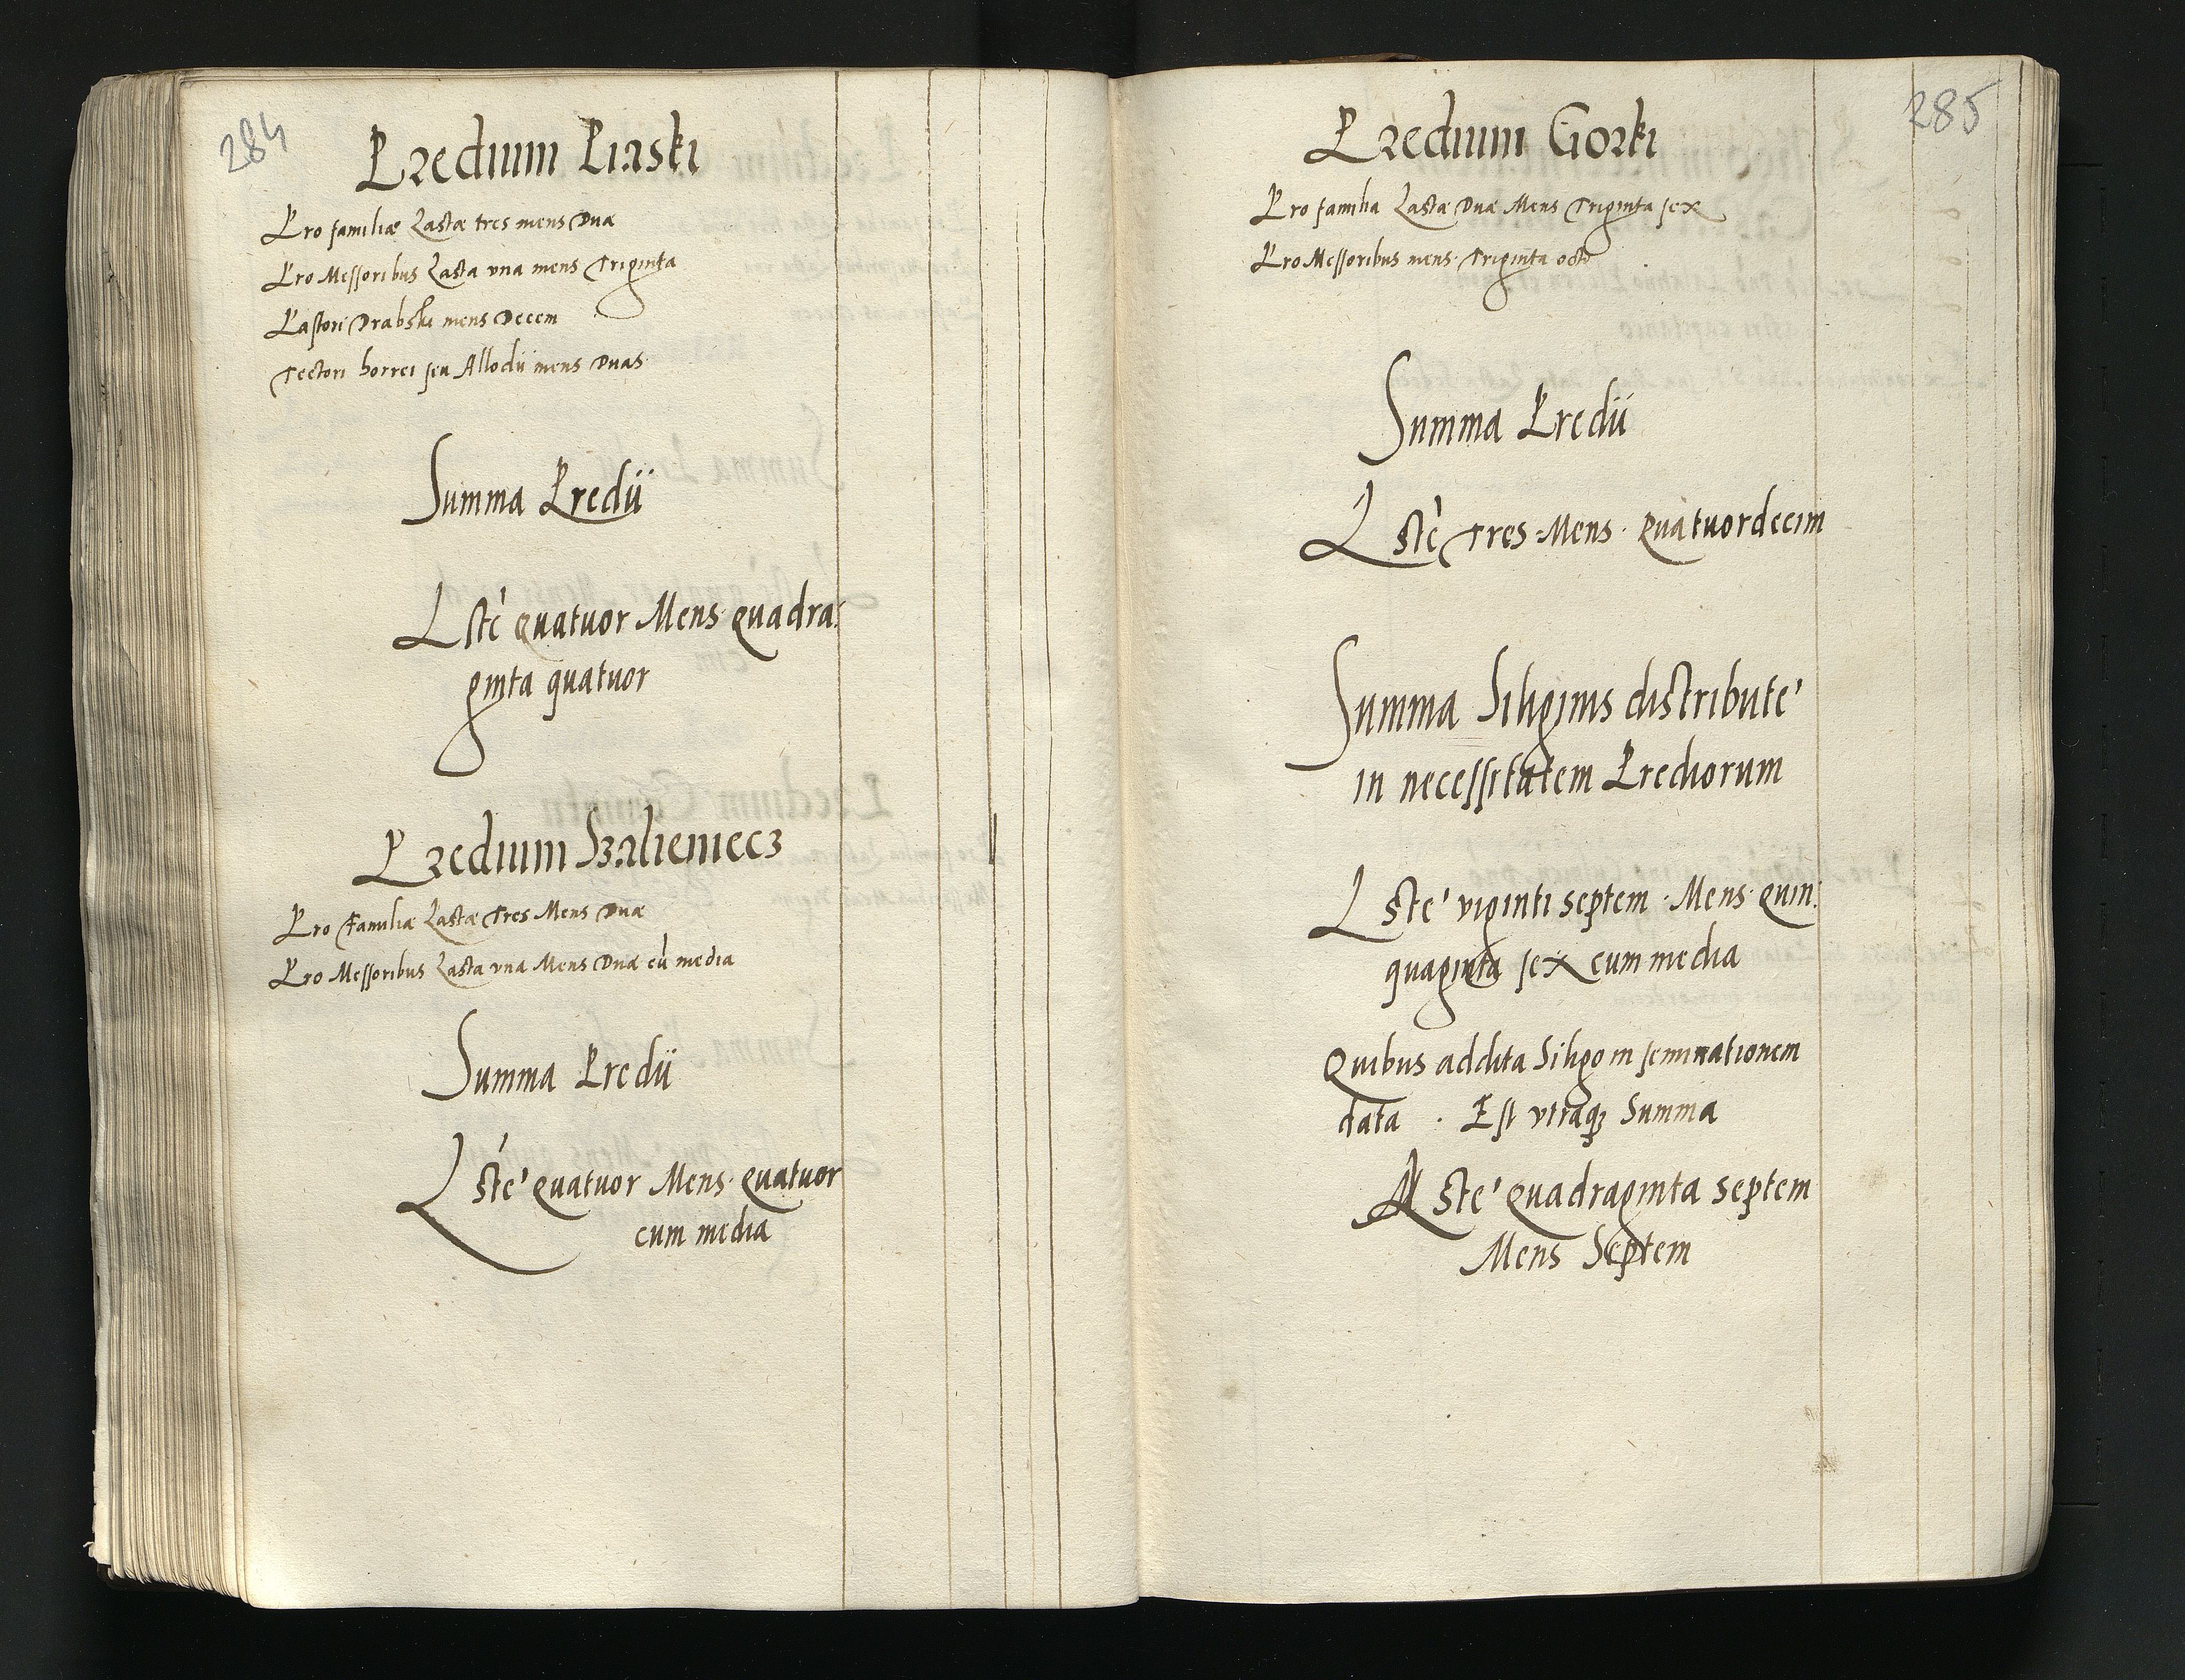 284
Predium Piaski
Pro familiæ Lastæ tres mens Duæ
Pro Messoribus Lasta vna mens Triginta
Pastori Drabski mens Decem
Tectori horrei seu Allodii mens Duas
Summa Predii
Lste quatuor Mens quadra:
ginta quatuor
Predium Szalieniecz
Pro Familiæ Lastæ Tres Mens Duæ
Pro Messoribus Lasta vna Mens Duæ cũ media
Summa Predii
Lste quatuor Mens. quatuor
cum media
285
Predium Gorki
Pro familia Lastæ Duæ Mens Triginta sex
Pro Messoribus mens. Triginta octo
Summa Predii
Lste Tres Mens. quatuordecim
Summa Siliginis distribute
in necessitatem Prediorum
Lste viginti septem Mens quin:
quaginta sex cum media
Quibus addita Siligo in seminationem
data . Est vtraq3 Summa
Lste quadraginta septem
Mens Septem